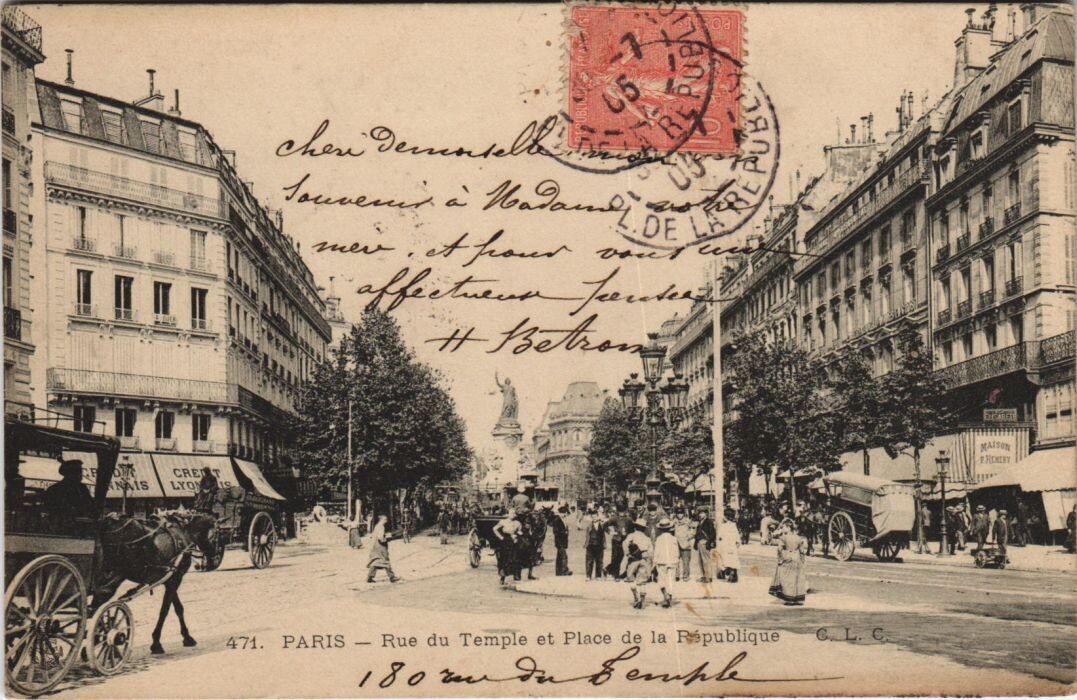 PL. DE LA RÉPUBLIQUE
05
chère Demoiselle mon
souvenir à Madame votre
mère. et pour vous une
affectueuse pensée
H Betrom
CREDIT LYONNAIS
CREDIT
LYONNAIS
MAISON
P. REMERY
471. PARIS — Rue du Temple et Place de la République C. L. C.
180 rue du Temple